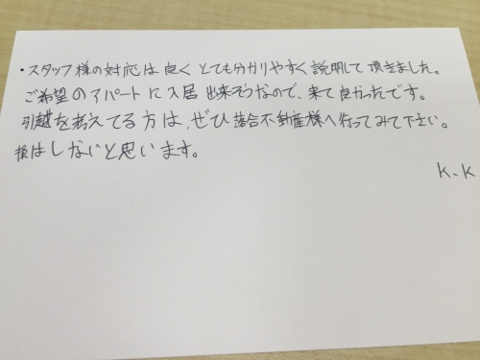 ・スタッフ様の対応は良くとても分かりやすく説明して頂きました。
ご希望のアパートに入居出来そうなので、来て良かったです。
引越を考えてる方は、ぜひ落合不動産様へ行ってみて下さい。
損はしないと思います。
K.K